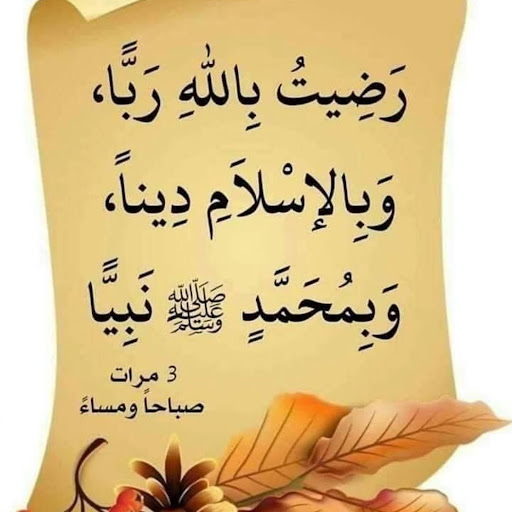 رَضِيتُ بِاللهِ رَبًّا،
وَبِالإِسْلاَمِ دِيناً،
وَبِمُحَمَّدٍ ﷺ نَبِيًّا
3 مرات
صباحاً ومساءً